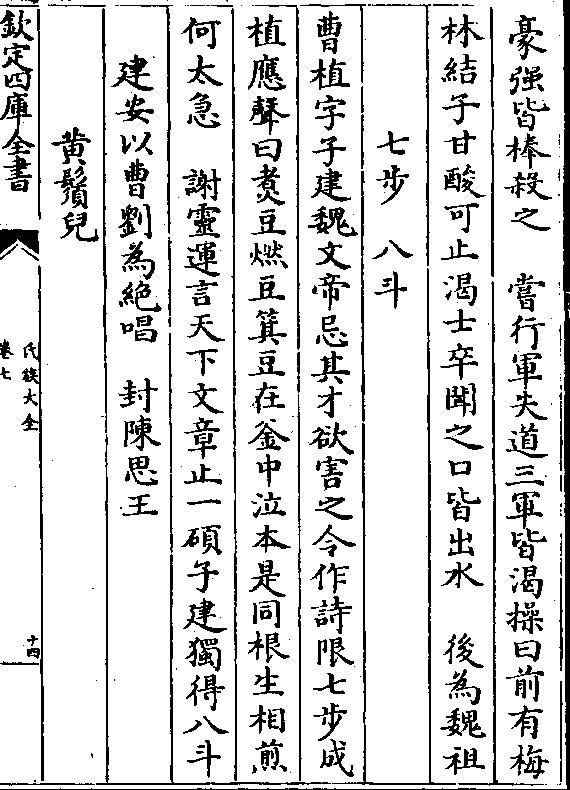 豪强皆棒殺之　嘗行軍失道三軍皆渴操曰前有梅
林結子甘酸可止渴士卒聞之口皆出水　後為魏祖
七步　八斗
曹植字子建魏文帝忌其才欲害之令作詩限七步成
植應聲曰煑豆燃豆箕豆在釜中泣本是同根生相煎
何太急　謝靈運言天下文章止一碩子建獨得八斗
建安以曹劉為絕唱　封陳思王
黄鬚兒
欽定四庫全書
氏族大全
卷七
十四